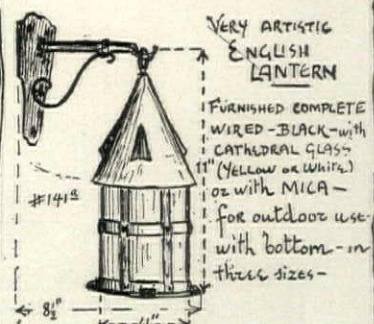 VERY ARTISTIC
ENGLISH
LANTERN
FURNISHED COMPLETE
WIRED-BLACK-with
CATHEDRAL GLASS
(YELLOW or WHITE)
or with MICA-
for outdoor use-
with bottom-in
three sizes-
11"
#141
8½"